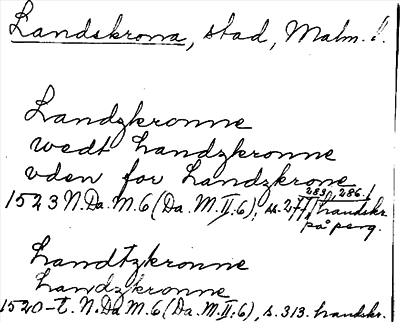 Landskrona, stad, Malm. l.
Landzkronne
wedt Landzkronne
vden for Landzkrone
1523 N. Da. M. 6 (Da. M. II: 6), s. 277, 283, 286. handskr.
på perg.
Landtzkronne
Landzkronne
1520-t. N. Da M. 6 (Da. M. II: 6), s. 313. handskr.